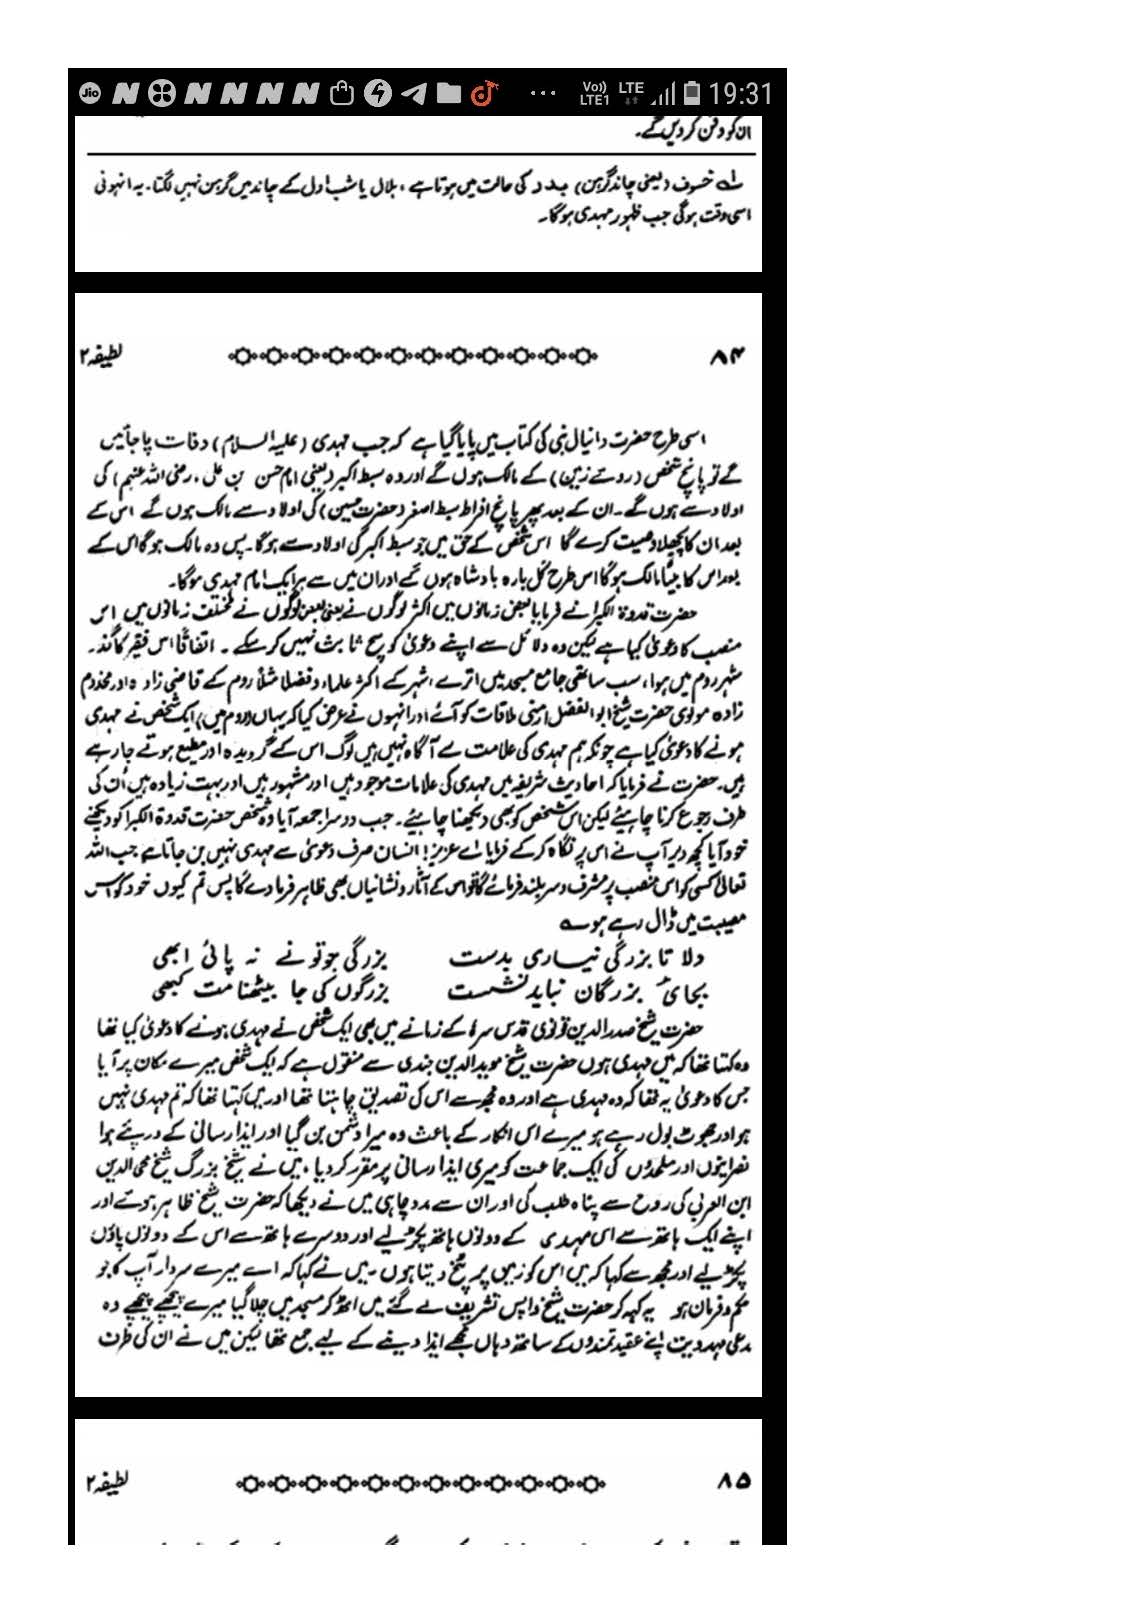 19:31
ان کو دفن کر دیں گے۔
لہ خسوف (یعنی چاند گرہن) بدر کی حالت میں ہوتا ہے، ہلال یا شب اول کے چاند میں گرہن نہیں لگتا۔ یہ انہونی
اسی وقت ہوگی جب ظہور مہدی ہوگا۔
۸۴ لطیفہ ۲
اسی طرح حضرت دانیال نبی کی کتاب میں پایا گیا ہے کہ جب مہدی (علیہ السلام) وفات پا جائیں
گے تو پانچ شخص (روئے زمین) کے مالک ہوں گے اور وہ سبط اکبر (یعنی امام حسن بن علی، رضی اللہ عنہم) کی
اولاد سے ہوں گے۔ ان کے بعد پھر پانچ افراط سبط اصغر (حضرت حسین) کی اولاد سے مالک ہوں گے اس کے
بعد ان کا پچھلا وصیت کرے گا اس شخص کے حق میں جو سبط اکبر کی اولاد سے ہوگا۔ پس وہ مالک ہوگا اس کے
بعد اس کا بیٹا مالک ہوگا اس طرح کل بارہ بادشاہ ہوں گے اور ان میں سے ہر ایک امام مہدی ہوگا۔
حضرت قدوۃ الکبرا نے فرمایا بعض زمانوں میں اکثر لوگوں نے یعنی بعض لوگوں نے مختلف زمانوں میں اس
منصب کا دعویٰ کیا ہے لیکن وہ دلائل سے اپنے دعویٰ کو سچ ثابت نہیں کر سکے۔ اتفاقاً اس فقیر کا گذر
شہر روم میں ہوا، سب ساتھی جامع مسجد میں اترے، شہر کے اکثر علماء و فضلا مثلاً روم کے قاضی زادہ اور مخدوم
زادہ مولوی حضرت شیخ ابوالفضل ارمنی ملاقات کو آئے اور انہوں نے عرض کیا کہ یہاں (روم میں) ایک شخص نے مہدی
ہونے کا دعویٰ کیا ہے چونکہ ہم مہدی کی علامت سے آگاہ نہیں ہیں لوگ اس کے گرویدہ اور مطیع ہوتے جا رہے
ہیں۔ حضرت نے فرمایا کہ احادیث شریفہ میں مہدی کی علامات موجود ہیں اور مشہور ہیں اور بہت زیادہ ہیں اُن کی
طرف رجوع کرنا چاہیئے لیکن اس شخص کو بھی دیکھنا چاہیئے۔ جب دوسرا جمعہ آیا وہ شخص حضرت قدوۃ الکبرا کو دیکھنے
خود آیا کچھ دیر آپ نے اس پر نگاہ کر کے فرمایا اے عزیز! انسان صرف دعویٰ سے مہدی نہیں بن جاتا ہے جب اللہ
تعالیٰ کسی کو اس منصب پر مشرف و سربلند فرمائے گا تو اس کے آثار و نشانیاں بھی ظاہر فرما دے گا پس تم کیوں خود کو اس
مصیبت میں ڈال رہے ہو ؎
دلا تا بزرگی نیاری بدست بزرگی جو تو نے نہ پائی ابھی
بجائ بزرگان نباید نشست بزرگوں کی جا بیٹھنا مت کبھی
حضرت شیخ صدرالدین قونوی قدس سرہٗ کے زمانے میں بھی ایک شخص نے مہدی ہونے کا دعویٰ کیا تھا
وہ کہتا تھا کہ میں مہدی ہوں حضرت شیخ موید الدین جندی سے منقول ہے کہ ایک شخص میرے مکان پر آیا
جس کا دعویٰ یہ تھا کہ وہ مہدی ہے اور وہ مجھ سے اس کی تصدیق چاہتا تھا اور میں کہتا تھا کہ تم مہدی نہیں
ہو اور جھوٹ بول رہے ہو میرے اس انکار کے باعث وہ میرا دشمن بن گیا اور ایذا رسانی کے درپئے ہوا
نصرانیوں اور ملحدوں کی ایک جماعت کو میری ایذا رسانی پر مقرر کر دیا، میں نے شیخ بزرگ شیخ محی الدین
ابن العربی کی روح سے پناہ طلب کی اور ان سے مدد چاہی میں نے دیکھا کہ حضرت شیخ ظاہر ہوئے اور
اپنے ایک ہاتھ سے اس مہدی کے دونوں ہاتھ پکڑ لیے اور دوسرے ہاتھ سے اس کے دونوں پاؤں
پکڑ لیے اور مجھ سے کہا کہ میں اس کو زمین پر پٹخ دیتا ہوں۔ میں نے کہا کہ اے میرے سردار آپ کا جو
حکم و فرمان ہو یہ کہہ کر حضرت شیخ واپس تشریف لے گئے میں اٹھ کر مسجد میں چلا گیا میرے پیچھے پیچھے وہ
مدعی مہدویت اپنے عقیدتمندوں کے ساتھ وہاں مجھے ایذا دینے کے لیے جمع تھا لیکن میں نے ان کی طرف
۸۵ لطیفہ ۲